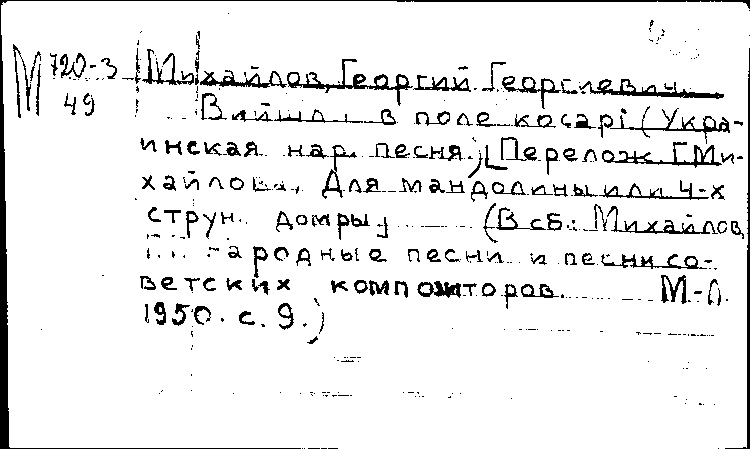 М 720-3 Михайлов, Георгий Георгиевич.
49 Вийшли в поле косарі (Укра-
инская нар. песня.) [Перелож. Г. Ми-
хайлова. Для мандолины или 4-х
струн. домры.] (В сб.: Михайлов,
Г. Народные песни и песни со-
ветских композиторов. М-Л.
1950. с. 9.)